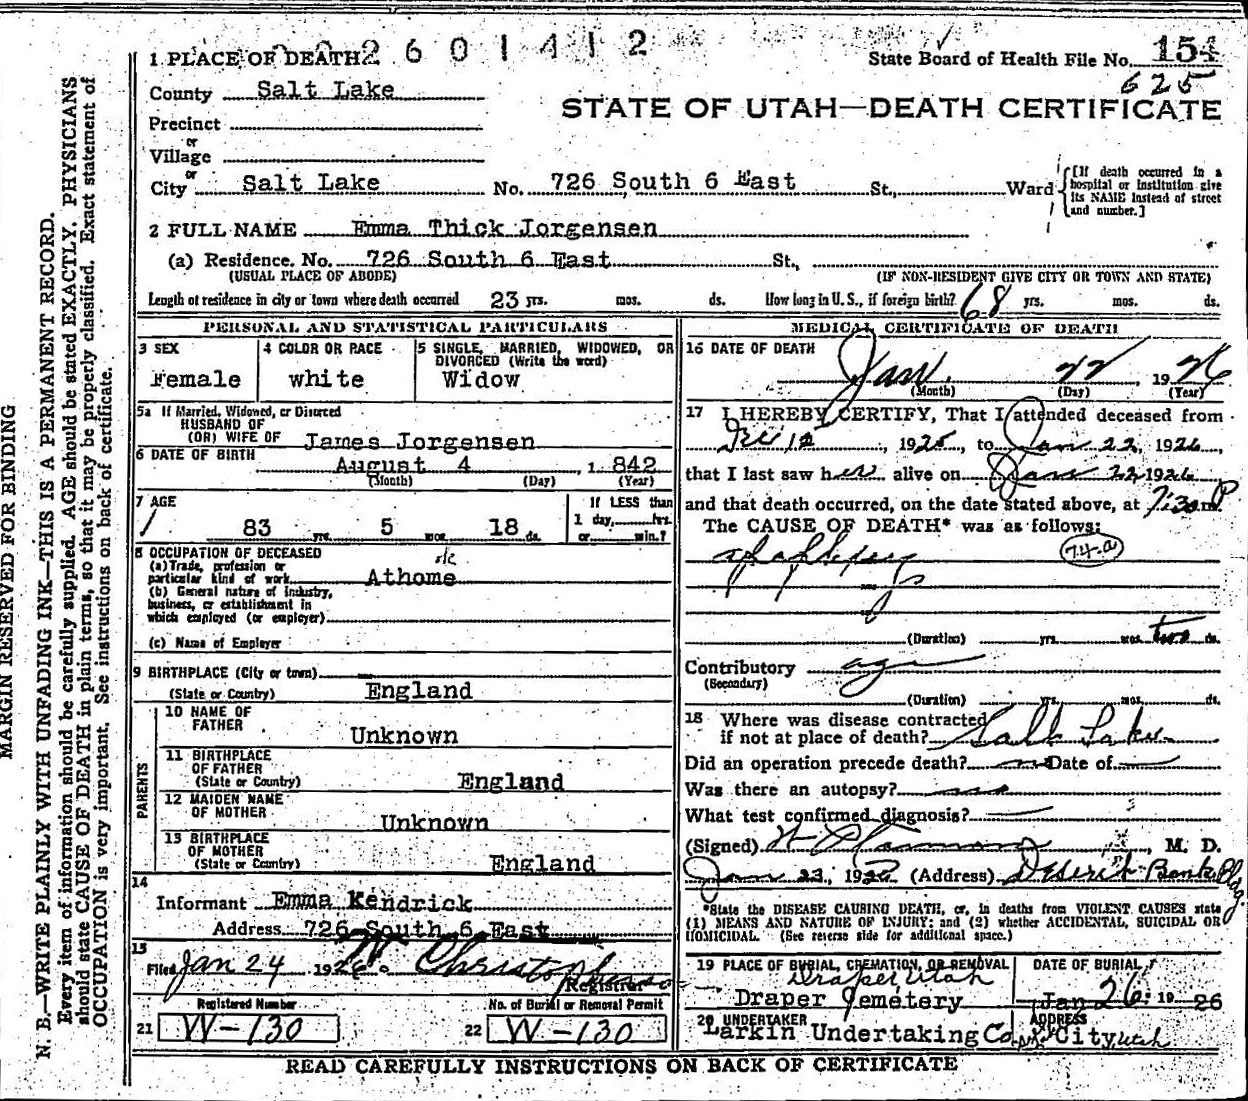 MARGIN RESERVED FOR BINDING
N. B.—WRITE PLAINLY WITH UNFADING INK—THIS IS A PERMANENT RECORD.
Every item of information should be carefully supplied. AGE should be stated EXACTLY. PHYSICIANS
should state CAUSE OF DEATH in plain terms, so that it may be properly classified. Exact statement of
OCCUPATION is very important. See instructions on back of certificate.
2601412
1 PLACE OF DEATH
State Board of Health File No. 154
625
County Salt Lake
STATE OF UTAH—DEATH CERTIFICATE
Precinct
or
Village
or
City Salt Lake No. 726 South 6 East St., Ward
[If death occurred in a
hospital or institution give
its NAME instead of street
and number.]
2 FULL NAME Emma Thick Jorgensen
(a) Residence. No. 726 South 6 East St.,
(USUAL PLACE OF ABODE) (IF NON-RESIDENT GIVE CITY OR TOWN AND STATE)
Length of residence in city or town where death occurred 23 yrs. mos. ds. How long in U.S., if foreign birth? 68 yrs. mos. ds.
PERSONAL AND STATISTICAL PARTICULARS
3 SEX
Female
4 COLOR OR RACE
white
5 SINGLE, MARRIED, WIDOWED, OR
DIVORCED (Write the word)
Widow
5a If Married, Widowed, or Divorced
HUSBAND OF
(OR) WIFE OF James Jorgensen
6 DATE OF BIRTH
August 4, 1842
(Month) (Day) (Year)
7 AGE
83 yrs. 5 mos. 18 ds.
If LESS than
1 day, hrs.
or min.?
8 OCCUPATION OF DECEASED
(a) Trade, profession or
particular kind of work Athome
(b) General nature of Industry,
business, or establishment in
which employed (or employer)
(c) Name of Employer
9 BIRTHPLACE (City or town)
(State or Country) England
PARENTS
10 NAME OF
FATHER
Unknown
11 BIRTHPLACE
OF FATHER
(State or Country) England
12 MAIDEN NAME
OF MOTHER
Unknown
13 BIRTHPLACE
OF MOTHER
(State or Country) England
14
Informant Emma Kendrick
Address 726 South 6 East
15
Filed Jan 24 1926.
Registrar
Registered Number
21 W-130
No. of Burial or Removal Permit
22 W-130
MEDICAL CERTIFICATE OF DEATH
16 DATE OF DEATH
Jan. 22, 1926
(Month) (Day) (Year)
17 I HEREBY CERTIFY, That I attended deceased from
Dec 12, 1925, to Jan 22, 1926,
that I last saw her alive on Jan 22 1926
and that death occurred, on the date stated above, at 7:30 P
The CAUSE OF DEATH* was as follows:
74-a
(Duration) yrs. mos. two ds.
Contributory age
(Secondary)
(Duration) yrs. mos. ds.
18 Where was disease contracted
if not at place of death? Salt Lake
Did an operation precede death? no Date of
Was there an autopsy? no
What test confirmed diagnosis?
(Signed) M. D.
Jan 23, 1926 (Address) Deseret Bank Bldg
*State the DISEASE CAUSING DEATH, or, in deaths from VIOLENT CAUSES state
(1) MEANS AND NATURE OF INJURY; and (2) whether ACCIDENTAL, SUICIDAL OR
HOMICIDAL. (See reverse side for additional space.)
19 PLACE OF BURIAL, CREMATION, OR REMOVAL
Draper, Utah
Draper Cemetery
DATE OF BURIAL
Jan 26 1926
20 UNDERTAKER
Larkin Undertaking Co
ADDRESS
City, Utah
READ CAREFULLY INSTRUCTIONS ON BACK OF CERTIFICATE